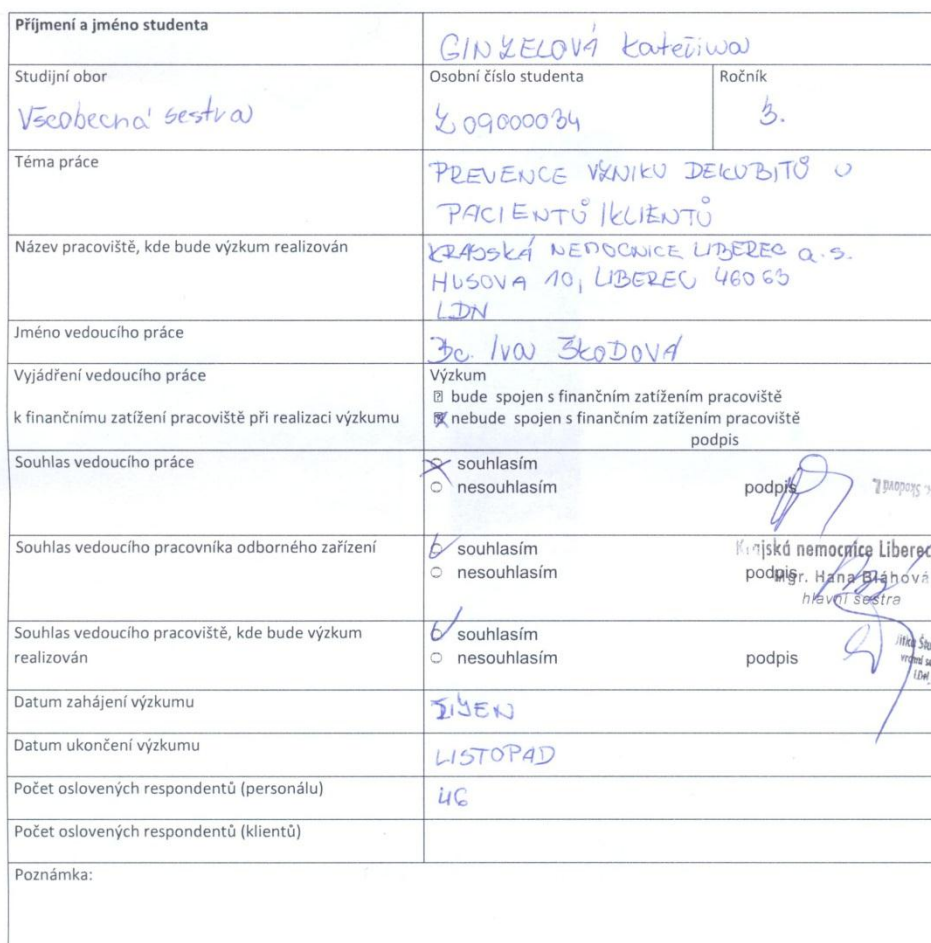 Příjmení a jméno studenta
GINZELOVÁ Kateřina
Studijní obor
Všeobecná sestra
Osobní číslo studenta
Z09000034
Ročník
3.
Téma práce
PREVENCE VZNIKU DEKUBITŮ U
PACIENTŮ/KLIENTŮ
Název pracoviště, kde bude výzkum realizován
KRAJSKÁ NEMOCNICE LIBEREC a.s.
HUSOVA 10, LIBEREC 46063
LDN
Jméno vedoucího práce
Bc. Iva ŠKODOVÁ
Vyjádření vedoucího práce
k finančnímu zatížení pracoviště při realizaci výzkumu
Výzkum
bude spojen s finančním zatížením pracoviště
nebude spojen s finančním zatížením pracoviště
podpis
Souhlas vedoucího práce
souhlasím
nesouhlasím podpis
Škodová
Souhlas vedoucího pracovníka odborného zařízení
souhlasím
nesouhlasím podpis
Krajská nemocnice Liberec
Mgr. Hana Bláhová
hlavní sestra
Souhlas vedoucího pracoviště, kde bude výzkum
realizován
souhlasím
nesouhlasím podpis
Datum zahájení výzkumu
ŘÍJEN
Datum ukončení výzkumu
LISTOPAD
Počet oslovených respondentů (personálu)
46
Počet oslovených respondentů (klientů)
Poznámka: